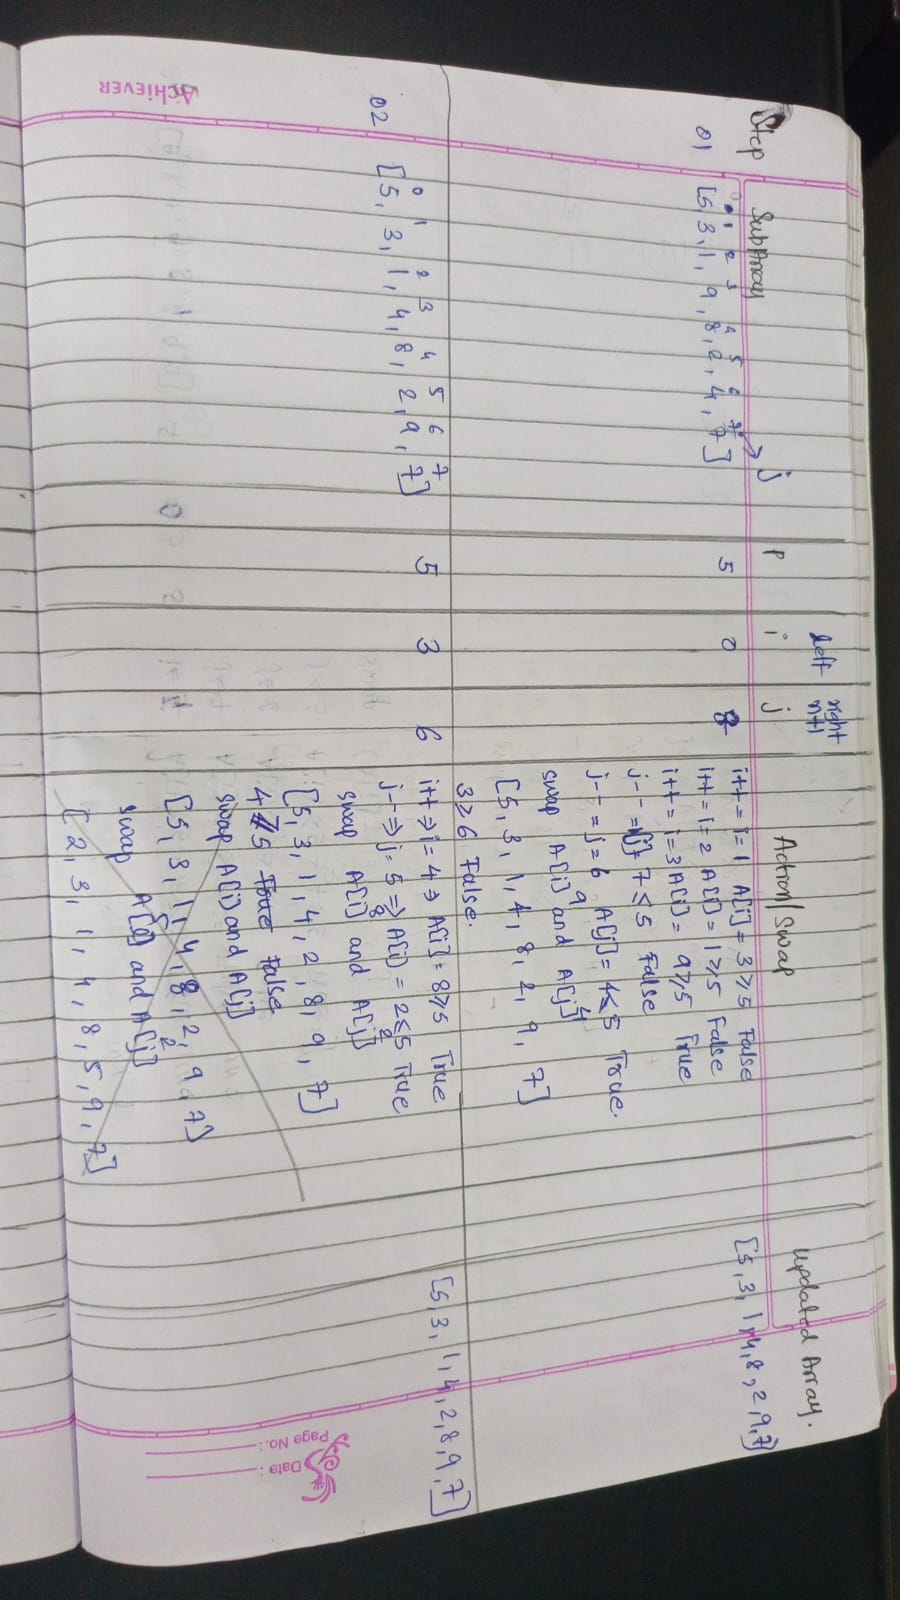 Step
SubArray
P
left
i
right
n+1
j
Action/Swap
Updated Array.
01
0 1 2 3 4 5 6 7 → j
[5, 3, 1, 9, 8, 2, 4, 7]
5
0
8
i++ = i = 1 A[i] = 3 ≥ 5 False
i++ = i = 2 A[i] = 1 ≥ 5 False
i++ = i = 3 A[i] = 9 ≥ 5 True
j-- = 7 ≤ 5 False
j-- = j = 6 A[j] = 4 ≤ 5 True.
9 4
swap A[i] and A[j]
[5, 3, 1, 4, 8, 2, 9, 7]
3 ≥ 6 False.
[5, 3, 1, 4, 8, 2, 9, 7]
02
0 1 2 3 4 5 6 7
[5, 3, 1, 4, 8, 2, 9, 7]
5
3
6
i++ ⇒ i = 4 ⇒ A[i] = 8 ≥ 5 True
j-- ⇒ j = 5 ⇒ A[i] = 2 ≤ 5 True
8 2
swap A[i] and A[j]
[5, 3, 1, 4, 2, 8, 9, 7]
4 ≥ 5 True False
swap A[i] and A[j]
[5, 3, 1, 4, 8, 2, 9, 7]
5 2
swap A[l] and A[j]
[2, 3, 1, 4, 8, 5, 9, 7]
[5, 3, 1, 4, 2, 8, 9, 7]
ACHIEVER
Page No.:
Date: